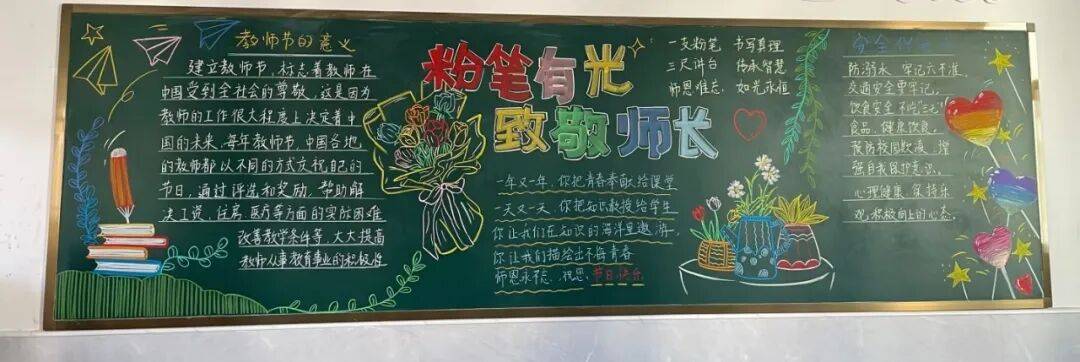 教师节的意义
建立教师节，标志着教师在
中国受到全社会的尊敬，这是因为
教师的工作很大程度上决定着中
国的未来，每年教师节，中国各地
的教师都以不同的方式庆祝自己的
节日，通过评选和奖励，帮助解
决工资、住房、医疗等方面的实际困难
改善教学条件等，大大提高
教师从事教育事业的积极性
粉笔有光
致敬师长
一年又一年，你把青春奉献给课堂
一天又一天，你把知识教授给学生
你让我们在知识的海洋里遨游，
你让我们描绘出不悔青春
师恩永志，祝您，节日快乐
一支粉笔 书写真理
三尺讲台 传承智慧
师恩难忘 如光永恒
安全
防溺水，牢记六不准，
交通安全要牢记，
饮食安全，不吃"三无"
食品，健康饮食，
预防校园欺凌，增
强自我保护意识，
心理健康，保持乐
观，积极向上的心态。